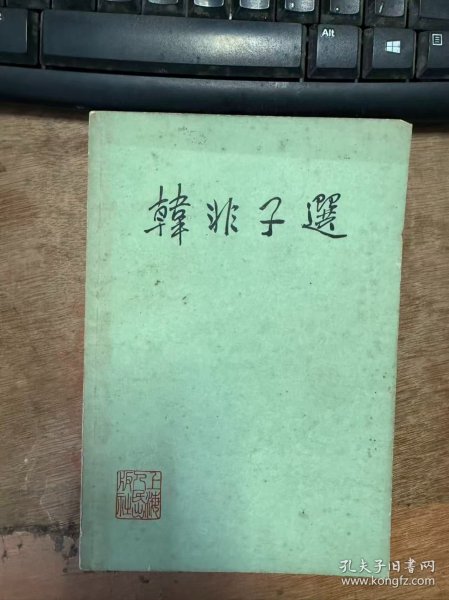 Alt
韓非子選
上海
人民
出
版社
孔夫子旧书网
www.kongfz.com